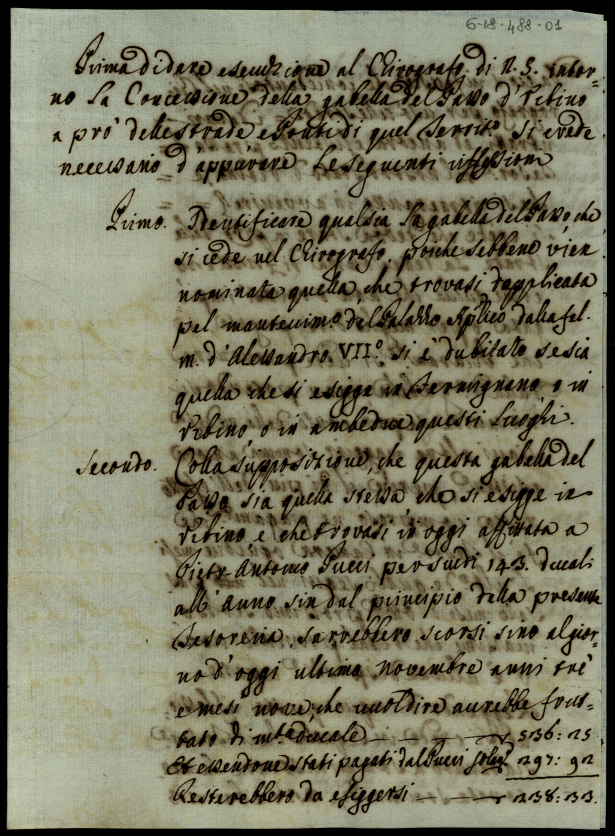 6-18-488-01
Prima di dare esecuzione al Chirografo di N. S. intor=
no la Concessione della gabella del Passo d'Urbino
a pro' delle strade e Ponti di quel Territo. si crede
necessario d'appurare le seguenti riflessioni
Primo. Identificare qual sia la gabella del Passo, che
si cede nel Chirografo, poiche sebbene vien
nominata quella, che trovasi applicata
pel mantenim.o del Palazzo Aplico dalla fel.
m. d'Alessandro VII.o si è dubitato se sia
quella che si esigge in Fermignano, o in
Urbino, o in ambedue questi luoghi.
Secondo. Colla supposizione, che questa gabella del
Passo sia quella stessa che si esigge in
Urbino, e che trovasi in oggi affittata a
Pietr'Antonio Pucci per scudi 143. ducali
all'anno sin dal principio della presente
Tesoreria, sarrebbero scorsi sino al gior=
no d'oggi ultimo Novembre anni trè
e mesi nove, che vuol dire avrebbe frut=
tato di m.ta ducale 536: 25
Et essendone stati pagati dal Pucci soli 297: 92
Resterebbero da esiggersi 238: 33.